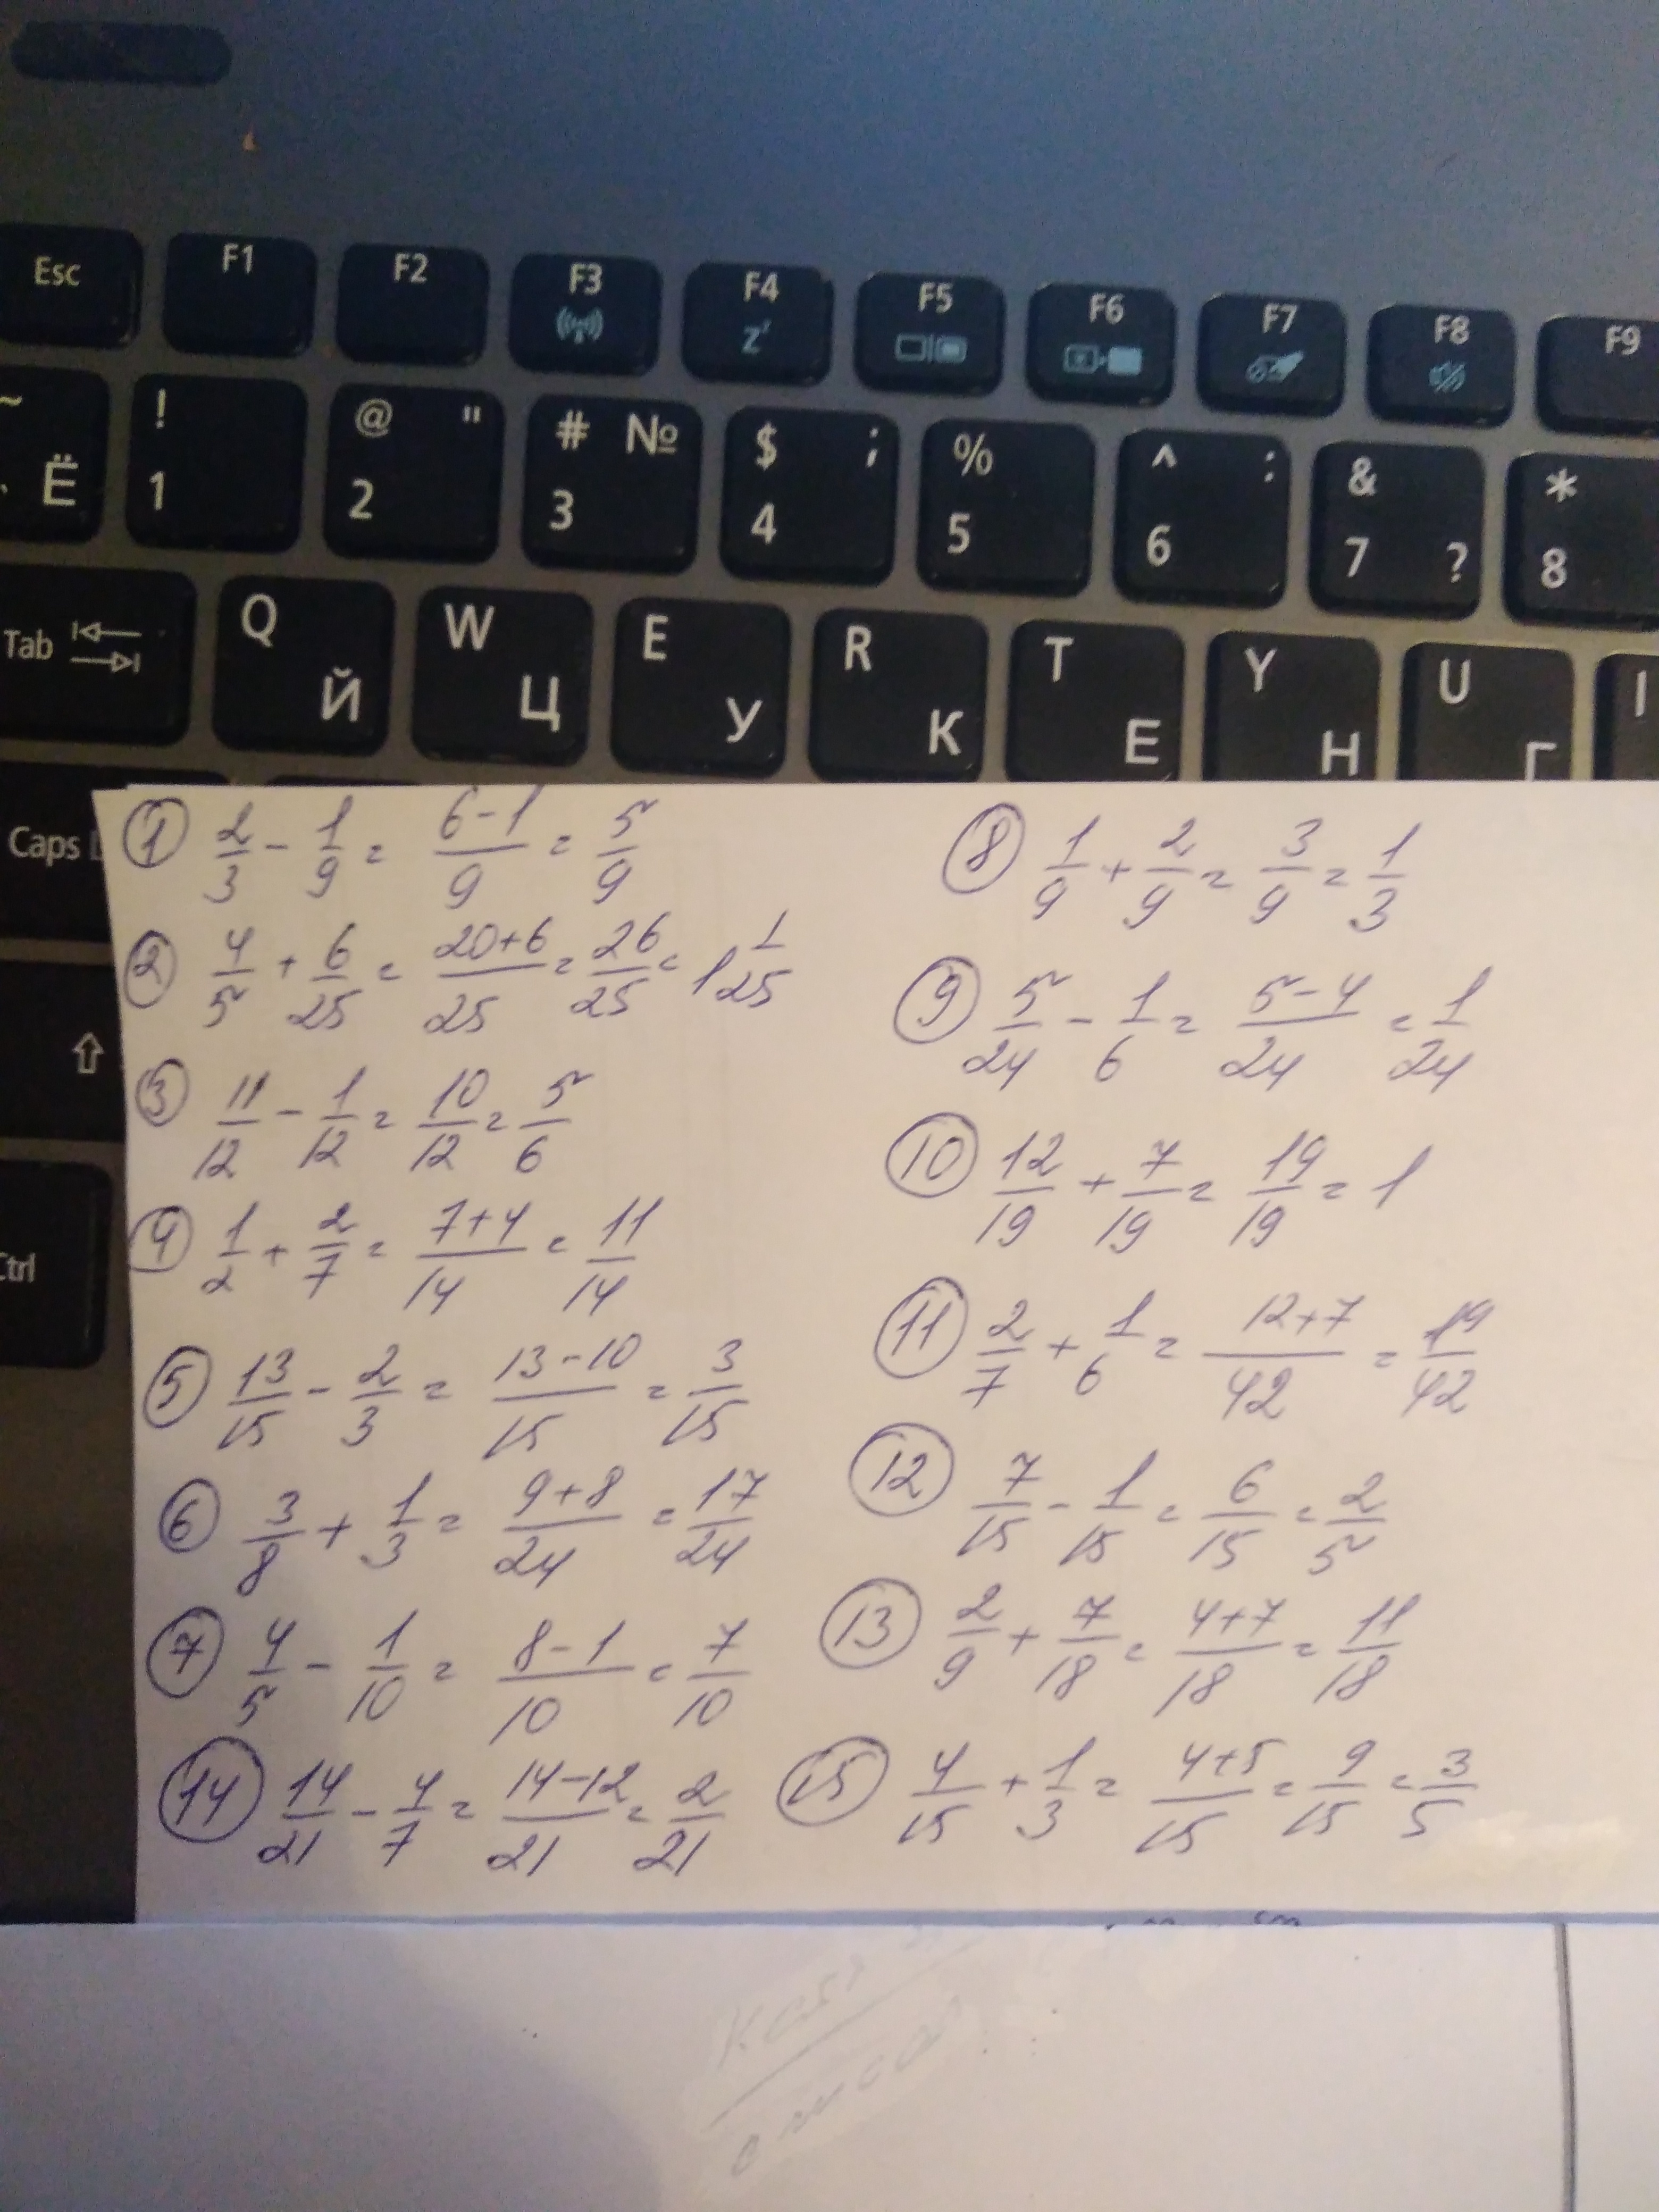 Esc F1 F2 F3 F4 F5 F6 F7 F8 F9
~ Ё ! 1 @ " 2 # № 3 $ ; 4 % 5 ^ : 6 & 7 ? * 8
Tab Q Й W Ц E У R К T Е Y Н U Г I
Caps
Ctrl
① 2/3 - 1/9 = (6-1)/9 = 5/9
② 4/5 + 6/25 = (20+6)/25 = 26/25 = 1 1/25
③ 11/12 - 1/12 = 10/12 = 5/6
④ 1/2 + 2/7 = (7+4)/14 = 11/14
⑤ 13/15 - 2/3 = (13-10)/15 = 3/15
⑥ 3/8 + 1/3 = (9+8)/24 = 17/24
⑦ 4/5 - 1/10 = (8-1)/10 = 7/10
⑧ 1/9 + 2/9 = 3/9 = 1/3
⑨ 5/24 - 1/6 = (5-4)/24 = 1/24
⑩ 12/19 + 7/19 = 19/19 = 1
⑪ 2/7 + 1/6 = (12+7)/42 = 19/42
⑫ 7/15 - 1/15 = 6/15 = 2/5
⑬ 2/9 + 7/18 = (4+7)/18 = 11/18
⑭ 14/21 - 4/7 = (14-12)/21 = 2/21
⑮ 4/15 + 1/3 = (4+5)/15 = 9/15 = 3/5